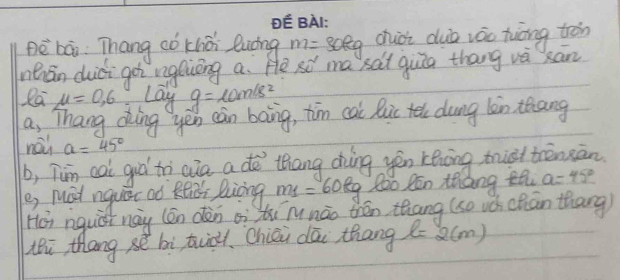 ĐỀ BÀI:
Đề bài: Thang có khối lượng m = 30kg được dựa vào tường trơn
nhẵn dưới góc nghiêng a. Hệ số ma sát giữa thang và sàn
là μ = 0,6 Lấy g = 10m/s²
a, Thang đứng yên cân bằng, tìm các lực tác dụng lên thang
nếu a = 45°
b, Tìm các giá trị của a để thang đứng yên không trượt trên sàn.
c, Một người có khối lượng m₁ = 60kg leo lên thang khi a = 45°
Hỏi người này lên đến vị trí M nào trên thang (so với chân thang)
thì thang sẽ bị trượt. Chiều dài thang l = 2(m)